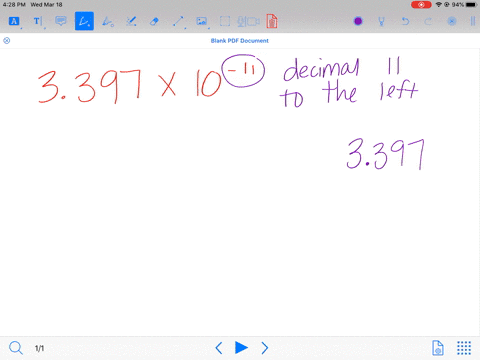 4:28 PM Wed Mar 18 94%
Blank PDF Document
3.397 x 10^-11
decimal 11
to the left
3.397
1/1